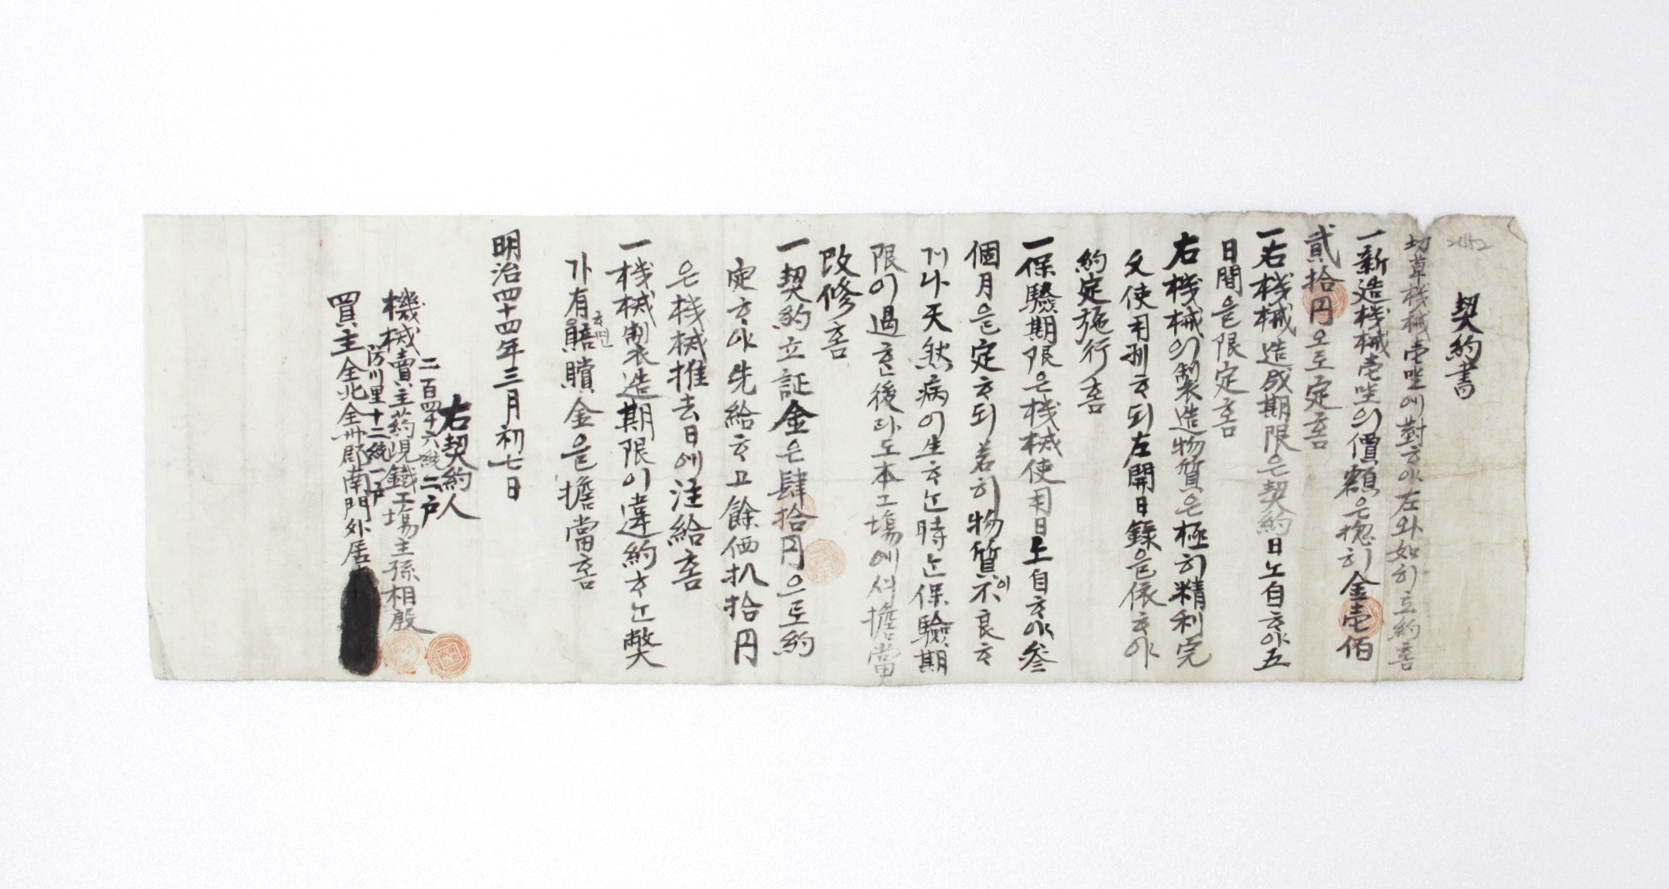 契約書
切草機械壹坐에對ᄒᆞ야左와如히立約홈
一新造機械壹坐의價額은摠히金壹佰
貳拾円으로定홈
一右機械造成期限은契約日노自ᄒᆞ야五
日間을限定홈
右機械의製造物質은極히精利完
全使用케ᄒᆞ되左開日錄을依ᄒᆞ야
約定施行홈
一保驗期限은機械使用日노自ᄒᆞ야參
個月을定ᄒᆞ되若히物質이不良ᄒᆞ
거나天然病이生ᄒᆞᄂᆞᆫ時ᄂᆞᆫ保驗期
限이過ᄒᆞᆫ後라도本工塲에셔擔當
改修홈
一契約立証金은肆拾円으로約
定ᄒᆞ야先給ᄒᆞ고餘価捌拾円
은機械推去日에注給홈
一機械製造期限이違約ᄒᆞᄂᆞᆫ弊
가有ᄒᆞ면賠贖金을擔當홈
明治四十四年三月初七日
右契約人
二百四十六統二戶
機械賣主葯峴鐵工塲主孫相殷
川里十二統一戶
買主全北全州郡南門外居